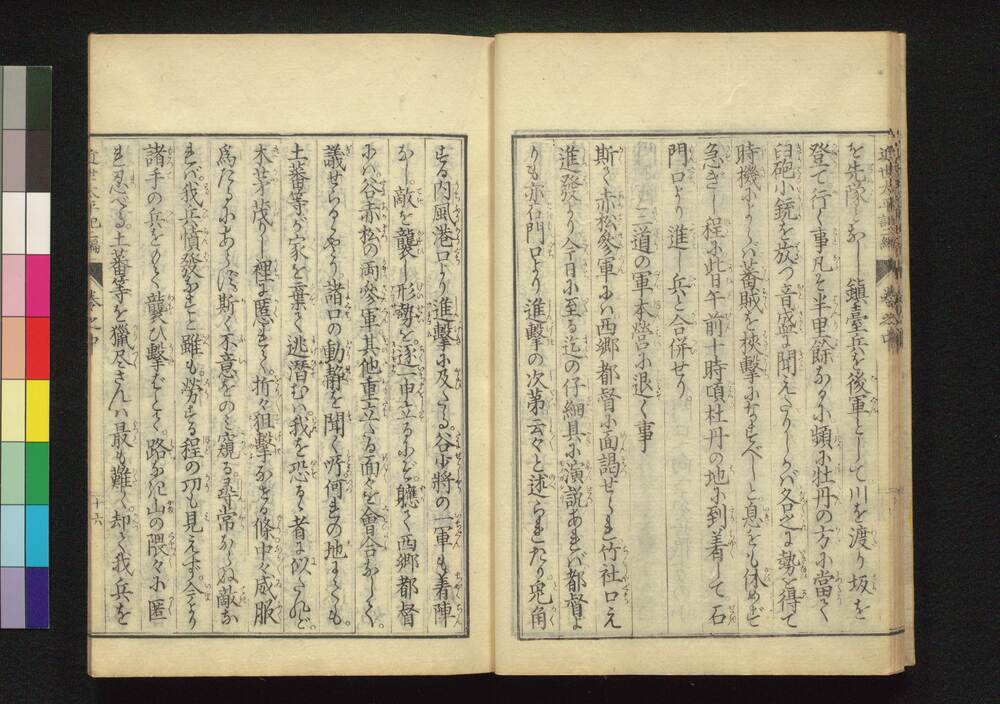 を先隊となし鎮臺兵を後軍として川を渡り坂を
登て行く事凡そ半里餘なる小頭に牡丹の方に當て
臼砲小銃を放つ音盛に聞えたりしが各之に勢を得て
時機によらバ蕃賊を挾撃になすべしと息をも休めずで
急ぎし程に此日午前十時頃杜丹の地に到着して石
門口より進し兵と合併せり。
三道の軍本營に退く事
斯く赤松參軍にハ西郷都督に面謁せられ竹社口え
進發より今日に至る迄の仔細具に演説あれバ都督よ
りも亦石門口より進撃の次第云々と述られたり兎角
する内風港口より進撃に及たる。谷少將の一軍も着陣
なし。敵を襲し形勢を。逐一申立るにぞ。軈て西郷都督
にハ。谷赤松の両參軍其他重立たる面々を會合なして。
議せらるゝやう諸口の動静を聞くに何れの地にても。
土蕃等が家を棄て逃潜むハ。我を恐るゝ者に似たれど。
木茅茂りし裡に匿れて。折々狙撃なせる條中々威服
爲たるにあらず。斯く不意をのミ窺る。尋常ならぬ敵な
れバ。我兵憤發なすと雖も。労する程の功も見えず。今より
諸手の兵をもて襲ひ撃むとて。路なき山の隈々に匿
れ忍べる。土蕃等を獵尽さんハ最も難し。却て我兵を
近世太平記二編
巻之四
十六